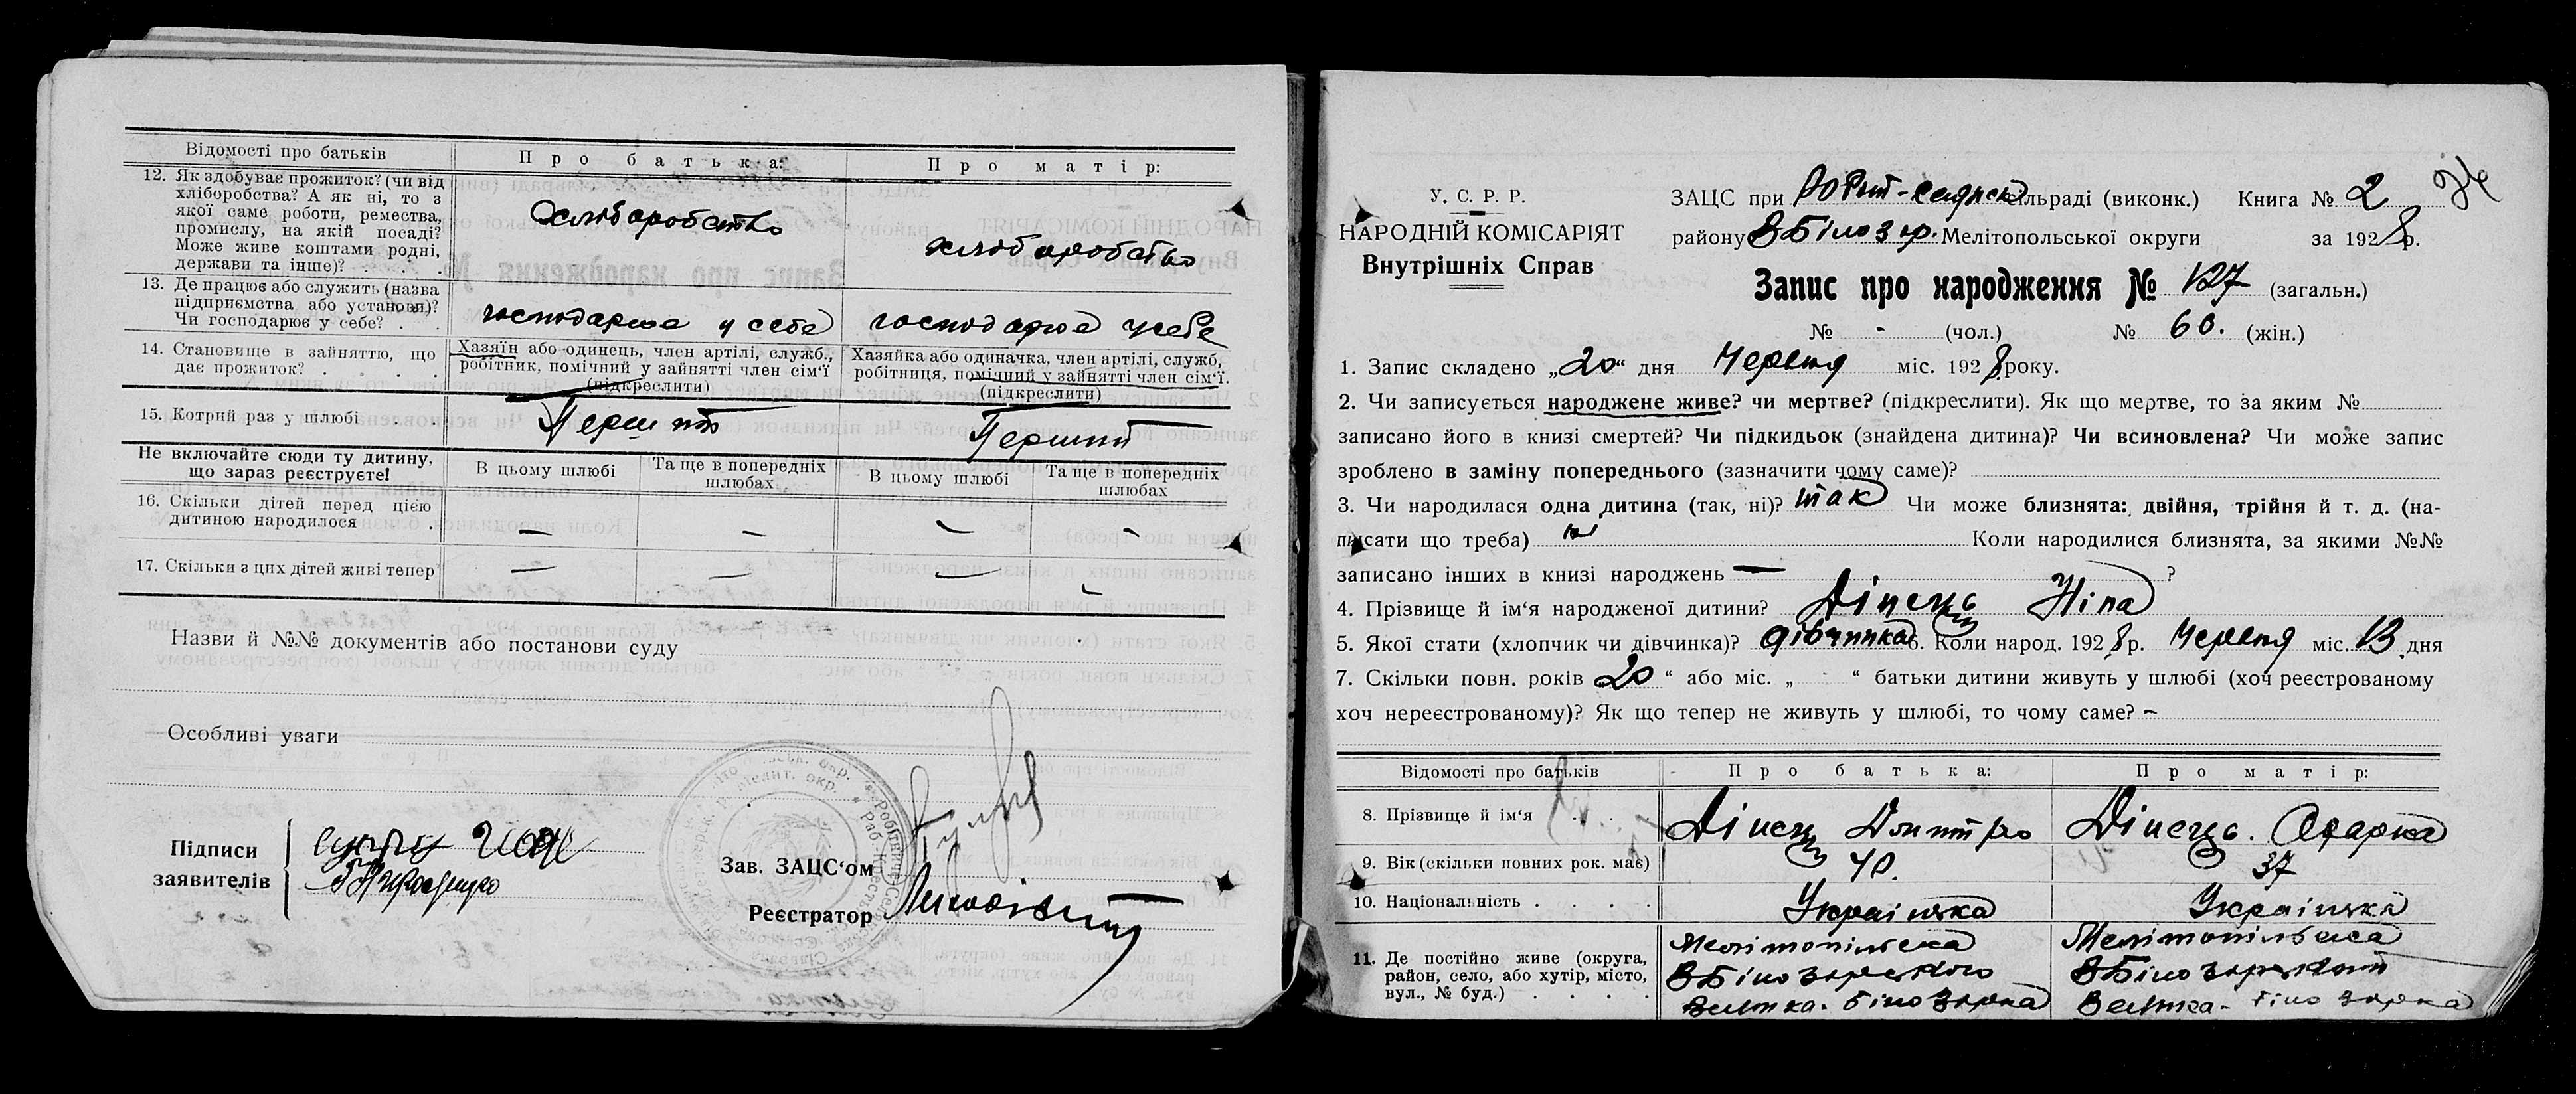 Відомості про батьків
Про батька:
Про матір:
12. Як здобуває прожиток? (чи від
хліборобства? А як ні, то з
якої саме роботи, ремества,
промислу, на якій посаді?
Може живе коштами родні,
держави та інше)? . . .
хліборобство
хліборобство
13. Де працює або служить (назва
підприємства або установи)?
Чи господарює у себе? . .
господарює у себе
господарює у себе
14. Становище в зайняттю, що
дає прожиток? . . . .
Хазяїн або одинець, член артілі, служб.,
робітник, помічний у зайнятті член сім'ї
(підкреслити)
Хазяйка або одиначка, член артілі, служб,
робітниця, помічний у зайнятті член сім'ї.
(підкреслити)
15. Котрий раз у шлюбі . .
Перший
Перший
Не включайте сюди ту дитину,
що зараз реєструєте!
В цьому шлюбі
Та ще в попередніх
шлюбах
В цьому шлюбі
Та ще в попередніх
шлюбах
16. Скільки дітей перед цією
дитиною народилося .
— — — —
17. Скільки з цих дітей живі тепер
— — — —
Назви й №№ документів або постанови суду
Особливі уваги
Підписи
заявителів
Зав. ЗАЦС'ом
Реєстратор
У. С. Р. Р.
НАРОДНІЙ КОМІСАРІЯТ
Внутрішніх Справ
ЗАЦС при сільраді (виконк.) Книга № 2
району В Білозір. Мелітопольської округи за 1928 р.
Запис про народження № 127 (загальн.)
№ - (чол.) № 60. (жін.)
1. Запис складено „20“ дня Червня міс. 1928 року.
2. Чи записується народжене живе? чи мертве? (підкреслити). Як що мертве, то за яким №
записано його в книзі смертей? Чи підкидьок (знайдена дитина)? Чи всиновлена? Чи може запис
зроблено в заміну попереднього (зазначити чому саме)?
3. Чи народилася одна дитина (так, ні)? так Чи може близнята: двійня, трійня й т. д. (на-
писати що треба) Коли народилися близнята, за якими №№
записано інших в книзі народжень — ?
4. Прізвище й ім'я народженої дитини? Дінець Ніна
5. Якої стати (хлопчик чи дівчинка)? дівчинка 6. Коли народ. 1928 р. Червня міс. 13 дня
7. Скільки повн. років 20 “ або міс. „ “ батьки дитини живуть у шлюбі (хоч реєстрованому
хоч нереєстрованому)? Як що тепер не живуть у шлюбі, то чому саме? —
Відомості про батьків
Про батька:
Про матір:
8. Прізвище й ім'я . . .
Дінець Дмитро
Дінець. Одарка
9. Вік (скільки повних рок. має)
40.
37
10. Національність . . . .
Українська
Українська
11. Де постійно живе (округа,
район, село, або хутір, місто,
вул., № буд.) . . . .
Мелітопільська
В Білозірського
Велика-Білозірка
Мелітопільська
В Білозірський
Велика-Білозірка